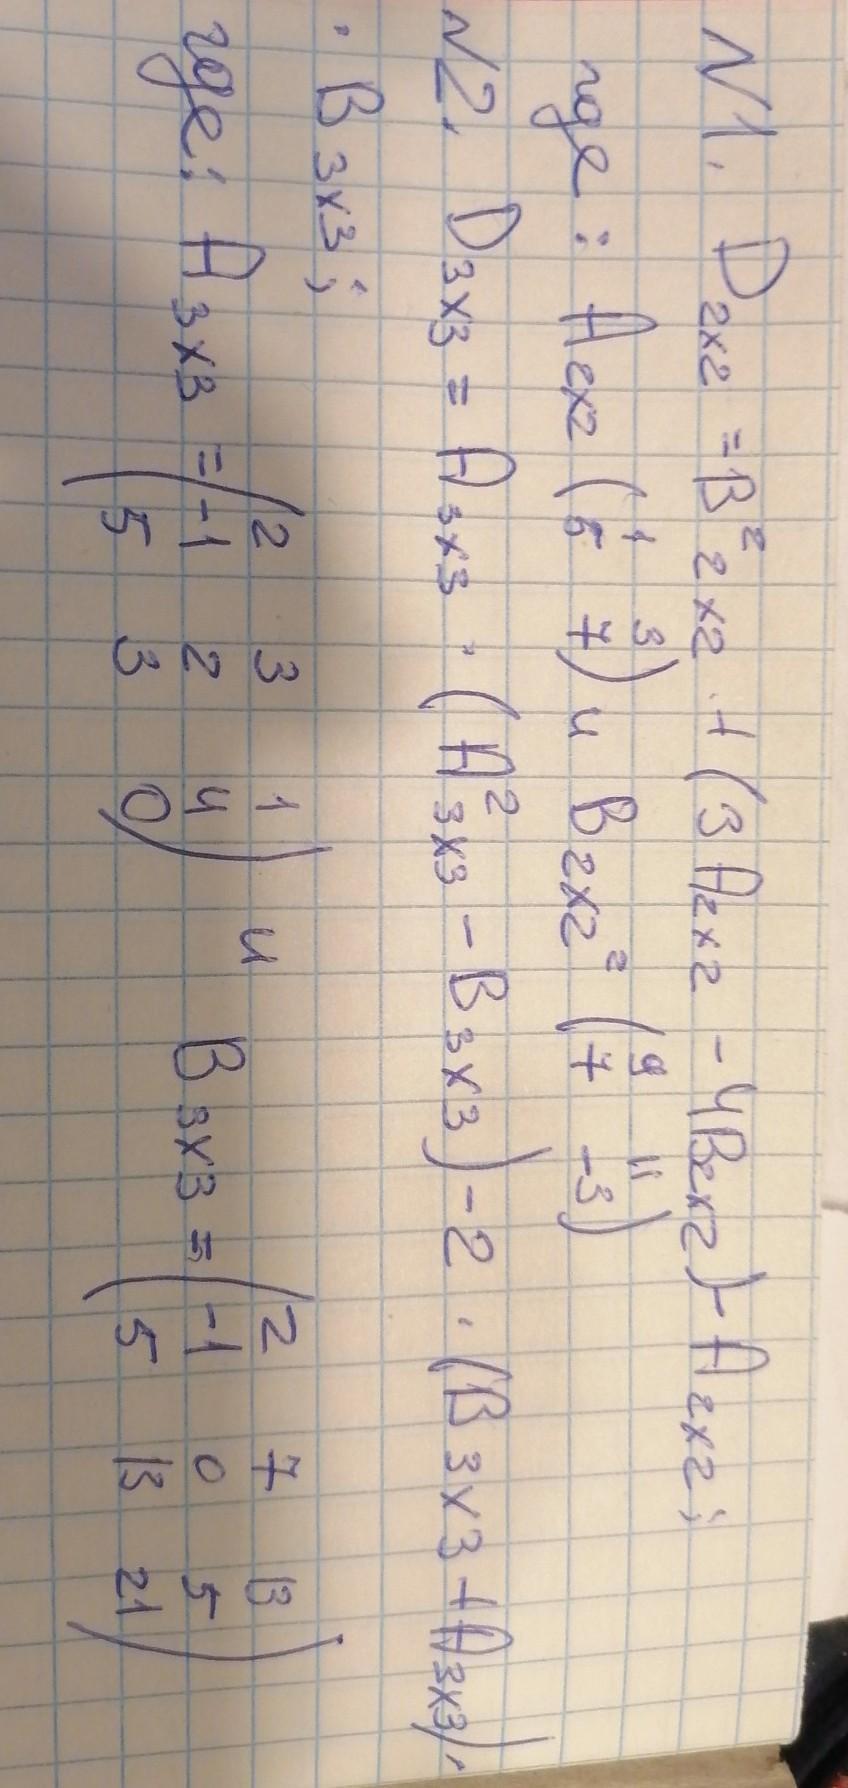 N1. D 2x2 = B² 2x2 + (3A 2x2 - 4B 2x2) - A 2x2;
где: A 2x2 (1 3
5 7) и B 2x2 = (9 11
7 -3)
N2. D 3x3 = A 3x3 · (A² 3x3 - B 3x3) - 2 · (B 3x3 + A 3x3) ·
· B 3x3;
где: A 3x3 = (2 3 1
-1 2 4
5 3 0) и B 3x3 = (2 7 13
-1 0 5
5 13 21)